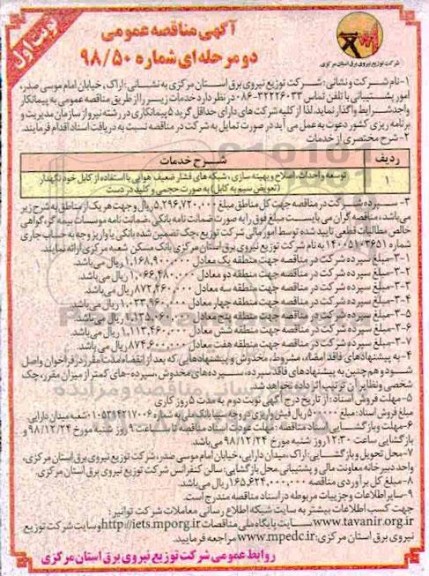 نوبت اول
آگهی مناقصه عمومی
دو مرحله ای شماره ۹۸/۵۰
شرکت توزیع نیروی برق استان مرکزی
۱-نام شرکت و نشانی: شرکت توزیع نیروی برق استان مرکزی به نشانی: اراک، خیابان امام موسی صدر،
امور پشتیبانی با تلفن تماس ۳۲۲۲۶۰۳۳-۰۸۶ در نظر دارد خدمات زیر را از طریق مناقصه عمومی به پیمانکار
واحد شرایط واگذار نماید. لذا از کلیه شرکت های دارای حداقل گرید ۵ پیمانکاری در رشته نیرو از سازمان مدیریت و
برنامه ریزی کشور دعوت به عمل می آید در صورت تمایل به شرکت در مناقصه نسبت به دریافت اسناد اقدام فرمایند.
۲- شرح مختصری از خدمات
ردیف شرح خدمات
۱ توسعه و احداث، اصلاح و بهینه سازی ، شبکه های فشار ضعیف هوایی با استفاده از کابل خودنگهدار
(تعویض سیم به کابل) به صورت حجمی و کلید در دست
۳- سپرده شرکت در مناقصه جهت کل مناطق مبلغ ۵,۲۹۶,۷۲۰,۰۰۰ ریال و جهت هر یک از مناطق به شرح زیر
می باشد، مناقصه گران می بایست مبلغ فوق را به صورت ضمانت نامه بانکی، ضمانت نامه موسسات بیمه گر، گواهی
خالص مطالبات قطعی تایید شده توسط امور مالی شرکت توزیع، چک تضمین شده بانکی یا واریز وجه به حساب جاری
شماره ۱۴۰۰۵۱۰۳۶۵۱ به نام شرکت توزیع نیروی برق استان مرکزی بانک مسکن شعبه مرکزی ارائه نمایند.
۳-۱-مبلغ سپرده شرکت در مناقصه جهت منطقه یک معادل ۱,۱۶۸,۹۰۰,۰۰۰ ریال می باشد.
۳-۲-مبلغ سپرده شرکت در مناقصه جهت منطقه دو معادل ۱,۰۶۶,۴۸۰,۰۰۰ ریال می باشد.
۳-۳-مبلغ سپرده شرکت در مناقصه جهت منطقه سه معادل ۸۷۲,۲۶۰,۰۰۰ ریال می باشد.
۳-۴-مبلغ سپرده شرکت در مناقصه جهت منطقه چهار معادل ۱,۰۳۳,۹۶۰,۰۰۰ ریال می باشد.
۳-۵-مبلغ سپرده شرکت در مناقصه جهت منطقه پنج معادل ریال می باشد.
۳-۶-مبلغ سپرده شرکت در مناقصه جهت منطقه شش معادل ۱,۱۱۳,۴۶۰,۰۰۰ ریال می باشد.
۳-۷-مبلغ سپرده شرکت در مناقصه جهت منطقه هفت معادل ۸۷۴,۶۰۰,۰۰۰ ریال می باشد.
۴- به پیشنهادهای فاقد امضاء، مشروط، مخدوش و پیشنهادهایی که بعد از انقضاء مدت مقرر در فراخوان واصل
شود و هم چنین به پیشنهادهای فاقد سپرده، سپرده های مخدوش، سپرده های کمتر از میزان مقرر، چک
شخصی و نظایر آن ترتیب اثر داده نخواهد شد.
۵- مهلت فروش اسناد: از تاریخ درج آگهی نوبت دوم به مدت ۵ روز کاری
مبلغ فروش اسناد: مبلغ ریال فیش واریزی در وجه سیبا بانک ملی به شماره شعبه میدان دارایی.
۶-مهلت و بازگشایی اسناد مناقصه: مهلت عودت اسناد مناقصه تا ساعت ۹ روز شنبه مورخ ۹۸/۱۲/۲۴ و
بازگشایی ساعت ۱۲:۳۰ روز شنبه مورخ ۹۸/۱۲/۲۴ می باشد.
۷-محل تحویل و بازگشایی: اراک، میدان دارایی، خیابان امام موسی صدر، شرکت توزیع نیروی برق استان مرکزی.
واحد دبیرخانه معاونت مالی و پشتیبانی. محل بازگشایی: سالن کنفرانس شرکت توزیع نیروی برق استان مرکزی.
۸-مبلغ کل برآوردی مناقصه ۱۶۵,۶۲۴,۰۰۰,۰۰۰ ریال می باشد.
۹-سایر اطلاعات و جزییات مربوطه در اسناد مناقصه مندرج است.
جهت کسب اطلاعات بیشتر به سایت شبکه اطلاع رسانی معاملات شرکت توانیر:
www.tavanir.org.ir سایت پایگاه ملی مناقصات http://iets.mporg.ir و سایت شرکت توزیع
نیروی برق استان مرکزی: www.mpedc.ir مراجعه فرمایید.
روابط عمومی شرکت توزیع نیروی برق استان مرکزی